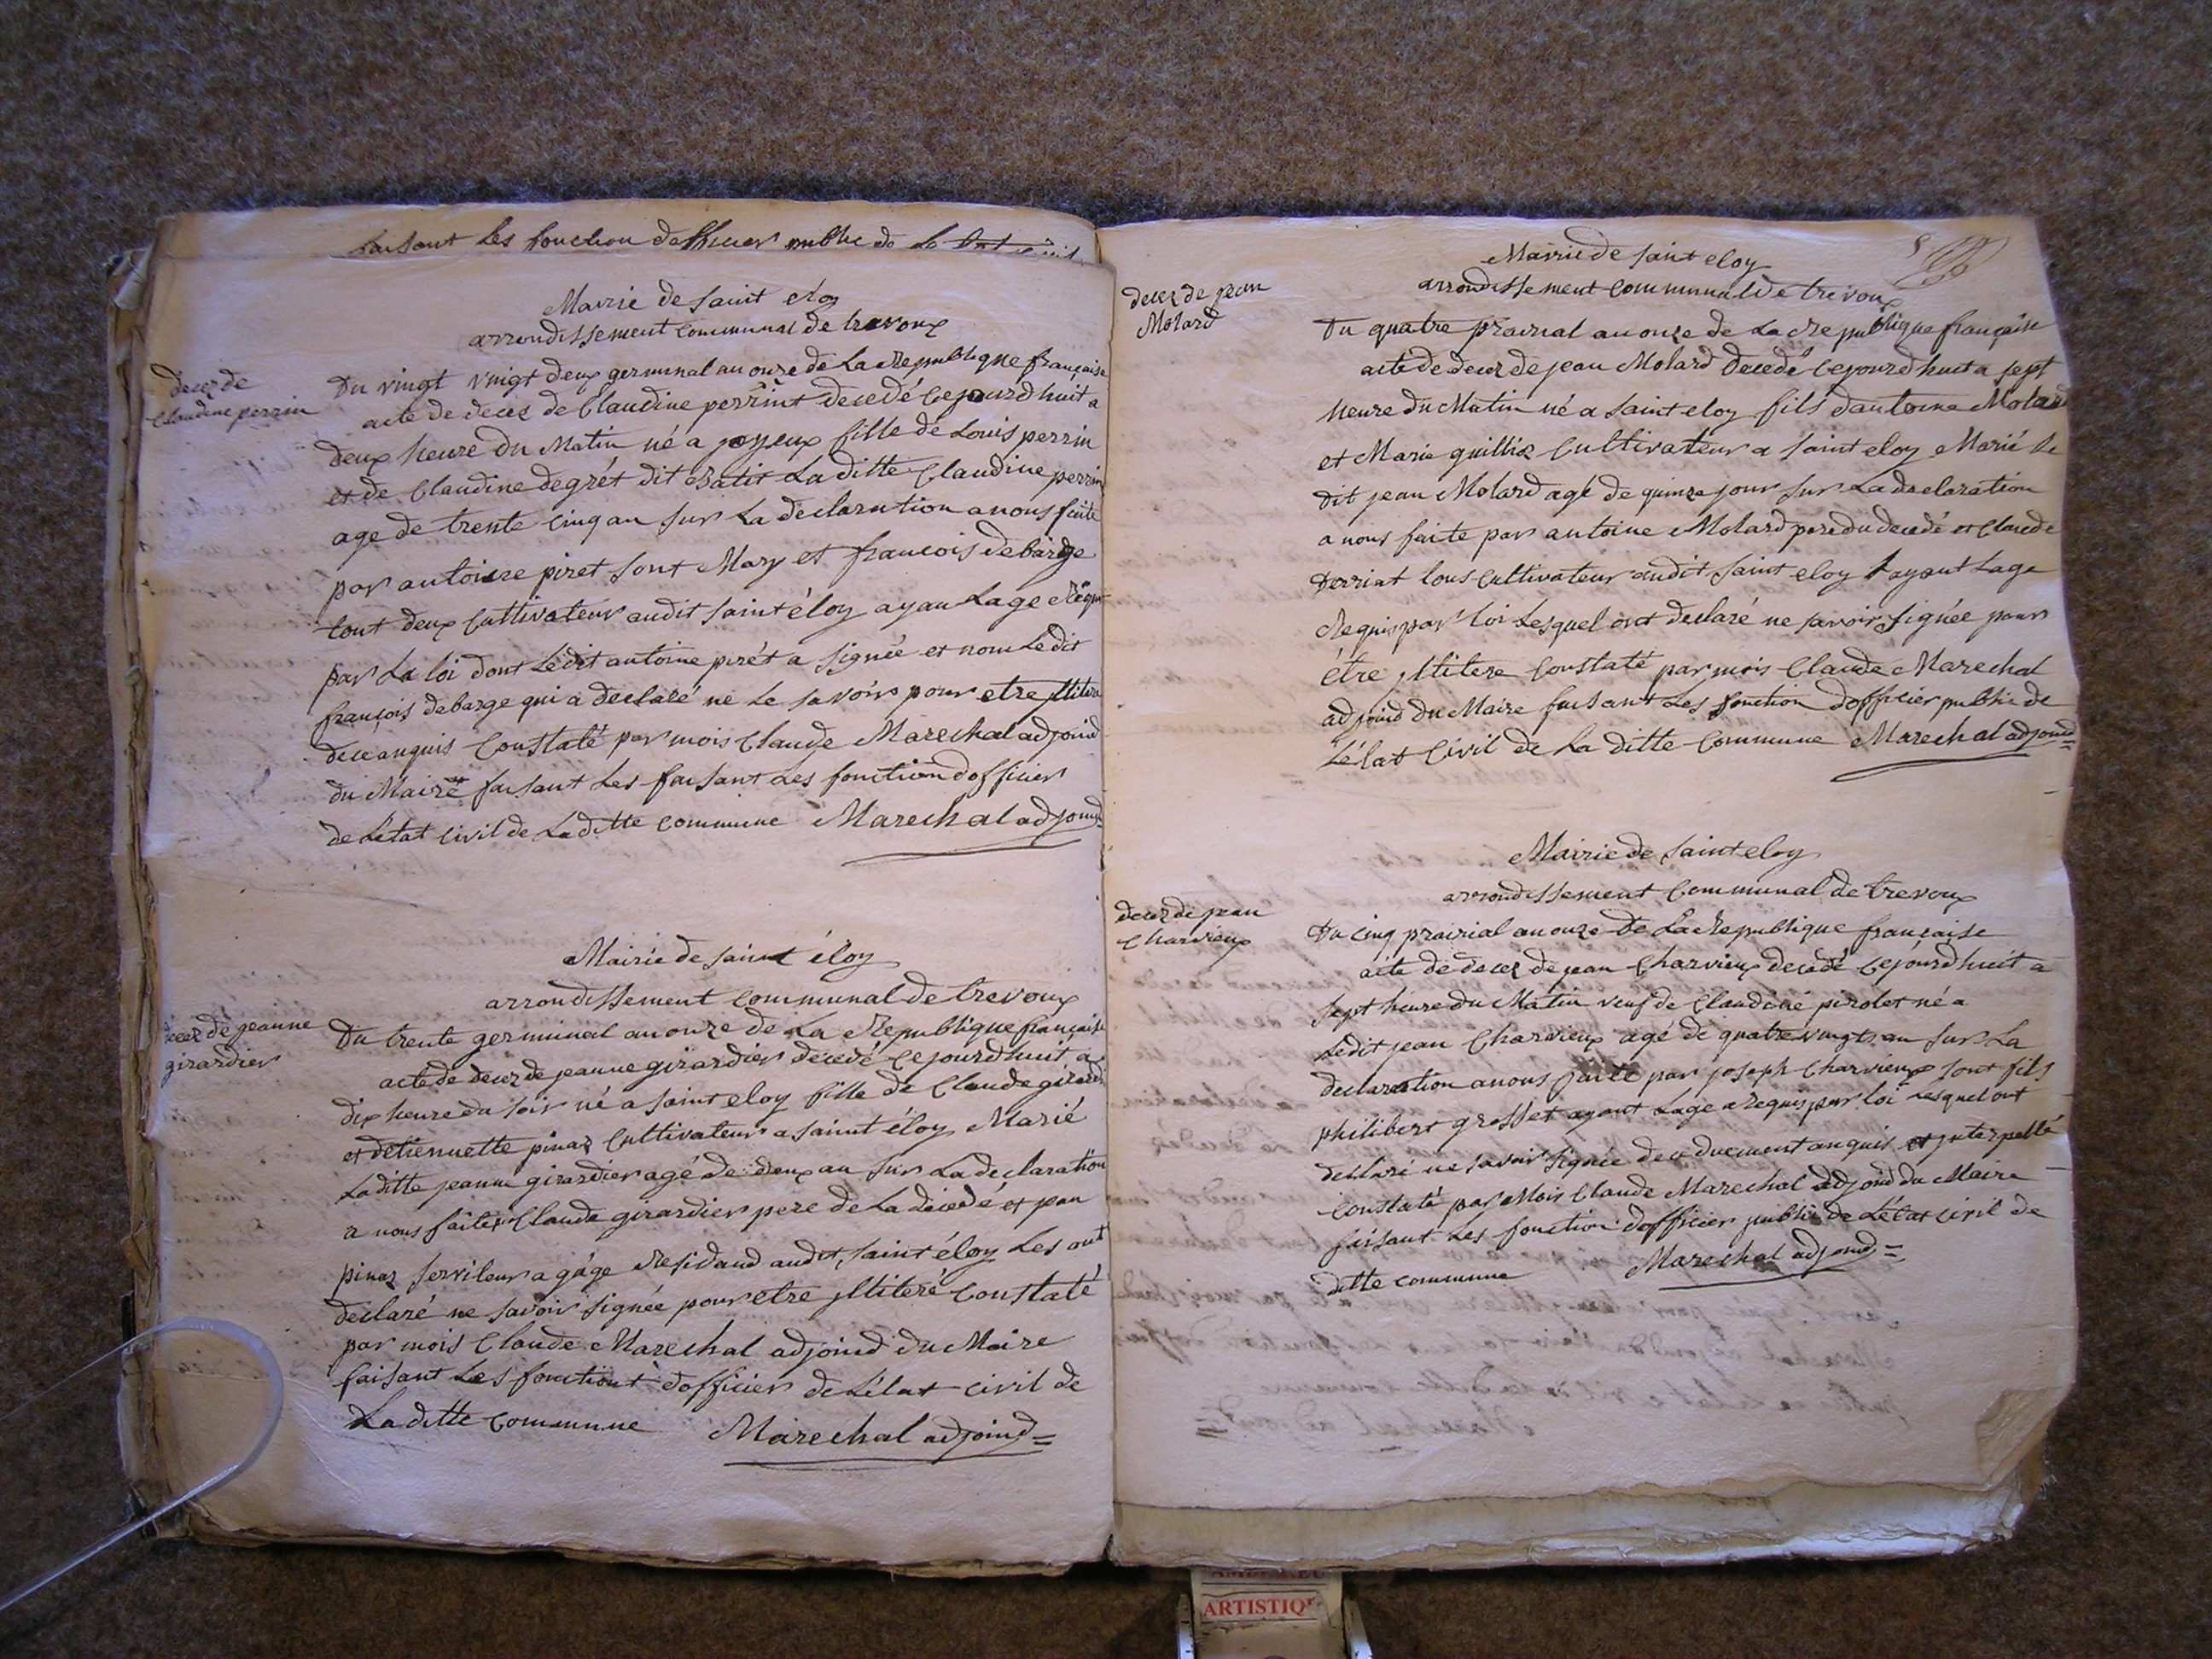 faisant les fonction dofficier public de
Mairie de saint eloy
arrondissement communal de trevoux
decez de
Claudine perrin
Du vingt vingt deux germinal an onze de La Republique française
acte de decez de Claudine perrint decedé cejourdhuit a
deux heure du Matin né a joyeux fille de Louis perrin
et de Claudine degrét dit Batit La ditte Claudine perrin
age de trente cinq an sur La declaration a nous faite
par antoine piret sont Mary et francois debarge
tout deux Cultivateur audit saint éloy ayan Lage Requi
par La loi dont Ledit antoine pirét a signée et nom Ledit
françois debarge qui a declaré ne Le savoir pour etre
de ce anquis Constaté par mois Claude Marechal adjoind
du Maire faisant Les faisant Les fonction dofficier
de Létat Civil de Laditte commune Marechal adjoind
Mairie de saint éloy
arrondissement communal de trevoux
decez de jeanne
girardier
Du trente germinal an onze de La Republique française
acte de decez de jeanne girardier decedé cejourdhuit a
dix heure du soir né a saint eloy fille de Claude girardi
et detiennette pinaz Cultivateur a saint éloy Marié
Laditte jeanne girardier agé de deux an sur La declaration
a nous faite Claude girardier pere de La decedé et jean
pinaz serviteur a gáge Residand audit saint éloy Les ont
declaré ne savoir signée pour etre jlliteré Constaté
par mois Claude Marechal adjoind du Maire
faisant Les fonctiont dofficier de Létat civil de
La ditte commune Marechal adjoind =
Mairie de saint eloy
arrondissement communal de trevoux
decez de jean
Molard
Du quatre prairial an onze de La Republique française
acte de decez de jean Molard decedé cejourdhuit a sept
heure du Matin né a saint eloy fils dantoine Molard
et Marie guilliez Cultivateur a saint eloy Marié Le
dit jean Molard agé de quinze jour sur La declaration
a nous faite par antoine Molard pere du decedé et Claude
perriat tous Cultivateur audit saint eloy ayant Lage
Requis par loi Lesquel ont declaré ne savoir signée pour
être jllitere Constaté par mois Claude Marechal
adjoind du Maire faisant Les fonction dofficier public de
Létat Civil de La ditte Commune Marechal adjoind =
Mairie de saint eloy
arrondissement Communal de trevoux
decez de jean
Charvieux
Du cinq prairial an onze de La Republique française
acte de decez de jean Charvieux decedé cejourdhuit a
sept heure du Matin veuf de Claudine pirolet né a
Ledit jean Charvieux agé de quatre vingts an sur La
declaration a nous faite par joseph Charvieux sont fils
philibert grosset ayant Lage Requis par loi Lesquel ont
declaré ne savoir signée de ce duement anquis et jnterpellé
Constaté par Mois Claude Marechal adjoind du Maire
faisant Les fonction dofficier public de Létat civil de
ditte commune Marechal adjoind =
ARTISTIQ